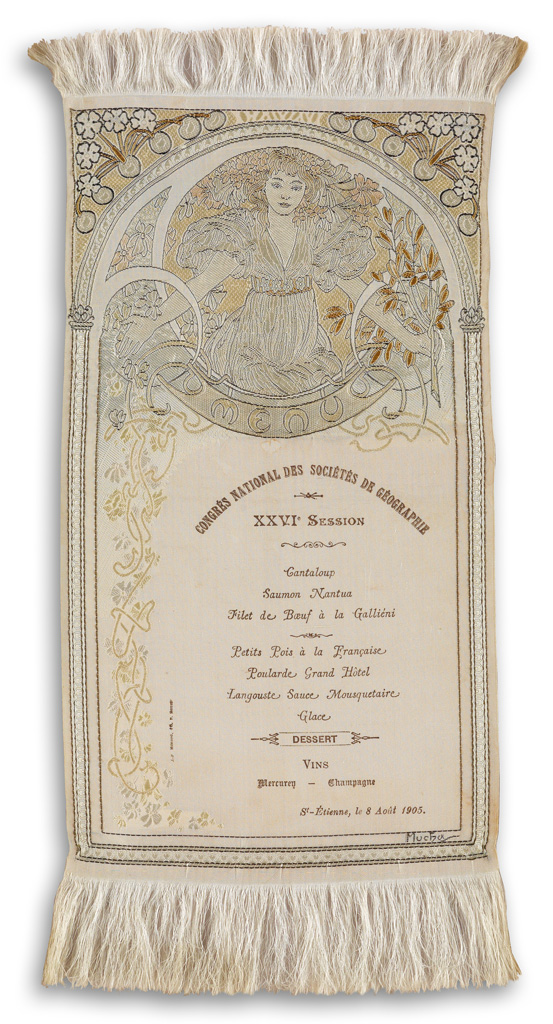 MENU
CONGRÈS NATIONAL DES SOCIÉTÉS DE GÉOGRAPHIE
XXVIᵉ SESSION
Cantaloup
Saumon Nantua
Filet de Bœuf à la Galliéni
Petits Pois à la Française
Poularde Grand Hôtel
Langouste Sauce Mousquetaire
Glace
DESSERT
VINS
Mercurey — Champagne
Sᵗ-Étienne, le 8 Août 1905.
Mucha